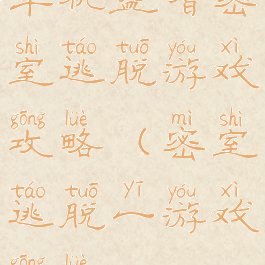 shì táo tuō yóu xì
室逃脱游戏
gōng lüè mì shì
攻略（密室
táo tuō yī yóu xì
逃脱一游戏
gōng lüè